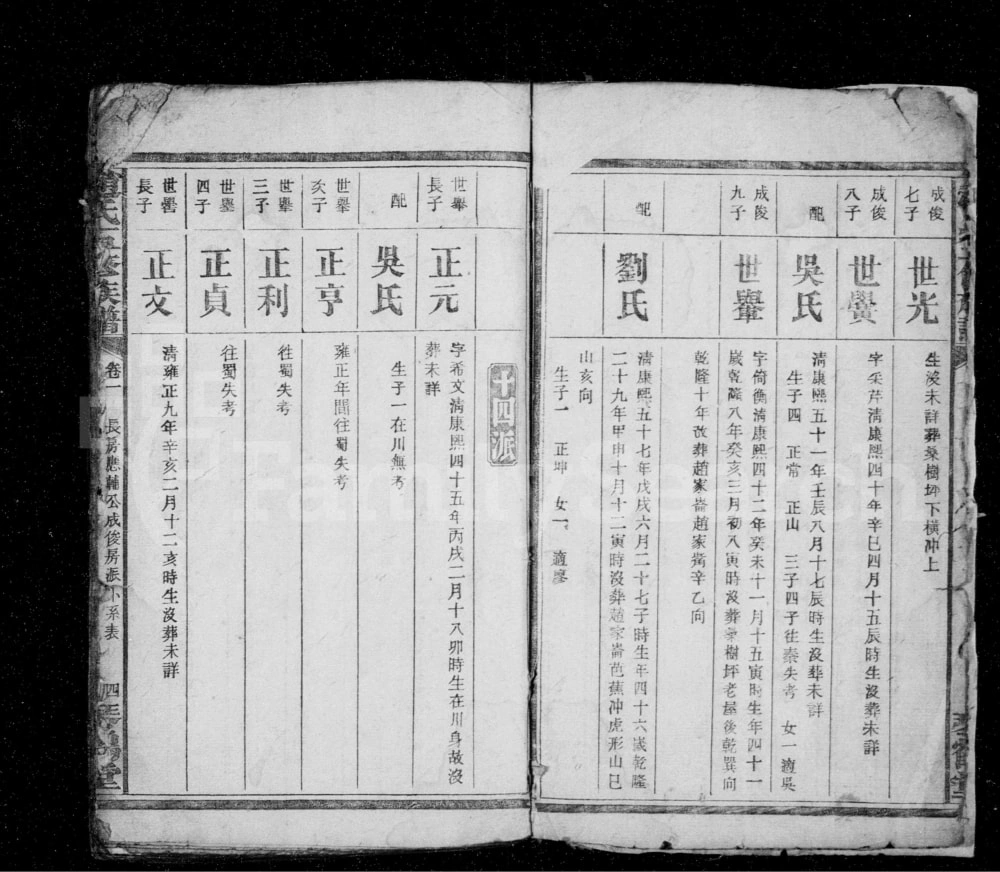 成俊
七子
世光
生沒未詳葬桑樹坪下橫冲上
成俊
八子
世黌
字采芹清康熙四十年辛巳四月十五辰時生沒葬未詳
配
吳氏
清康熙五十一年壬辰八月十七辰時生沒葬未詳
生子四 正常 正山 三子四子往秦失考 女一適吳
成俊
九子
世舉
字倚衡清康熙四十二年癸未十一月十五寅時生年四十一
歲乾隆八年癸亥三月初八寅時沒葬桑樹坪老屋後乾巽向
乾隆十年改葬趙家崙趙家觜辛乙向
配
劉氏
清康熙五十七年戊戌六月二十七子時生年四十六歲乾隆
二十九年甲申十月十二寅時沒葬趙家崙芭蕉冲虎形山巳
山亥向
生子一 正坤 女一 適廖
十四派
世舉
長子
正元
字希文清康熙四十五年丙戌二月十八卯時生在川身故沒
葬未詳
配
吳氏
生子一在川無考
世舉
次子
正亨
雍正年間往蜀失考
世舉
三子
正利
往蜀失考
世舉
四子
正貞
往蜀失考
世黌
長子
正文
清雍正九年辛亥二月十二亥時生沒葬未詳
氏五修族譜
卷一
長房應輔公成俊房派下系表
四三
堂